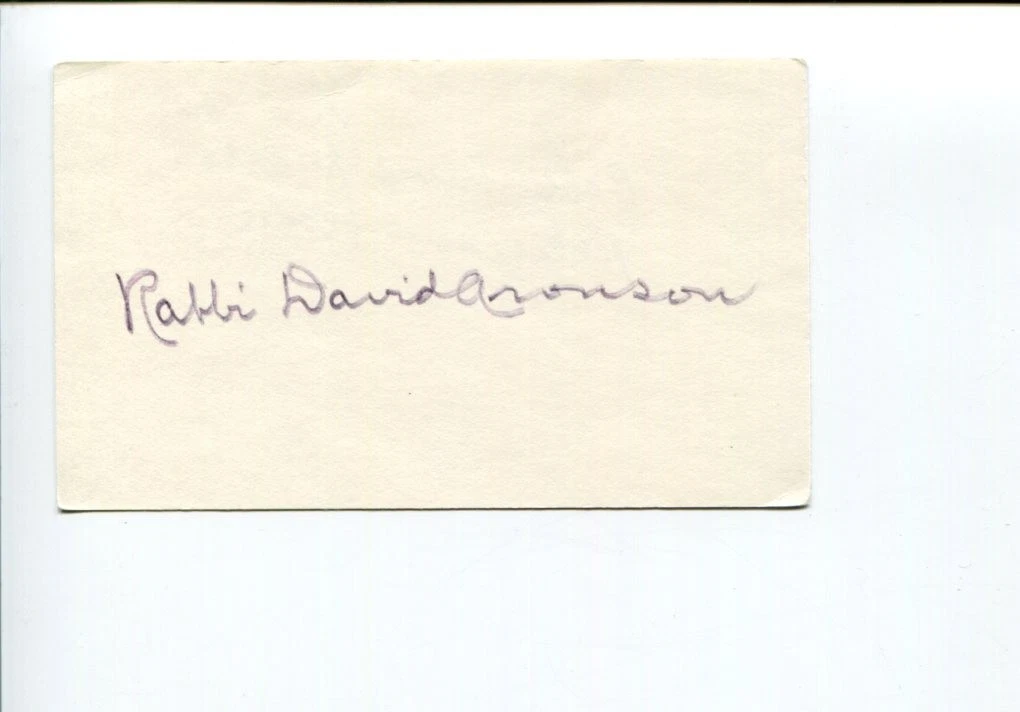 Rabbi David Aronson